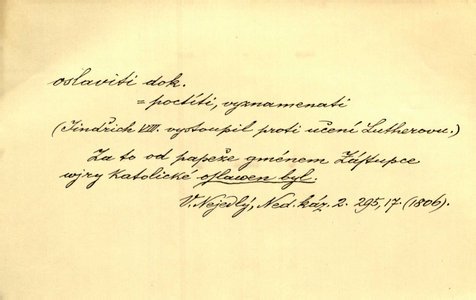 oslaviti dok.
= poctíti, vyznamenati
(Jindřich VIII. vystoupil proti učení Lutherovu.)
Za to od papeže gménem Zástupce
wjry katolické oslawen byl.
V. Nejedlý, Ned. káz. 2. 295,17 (1806).